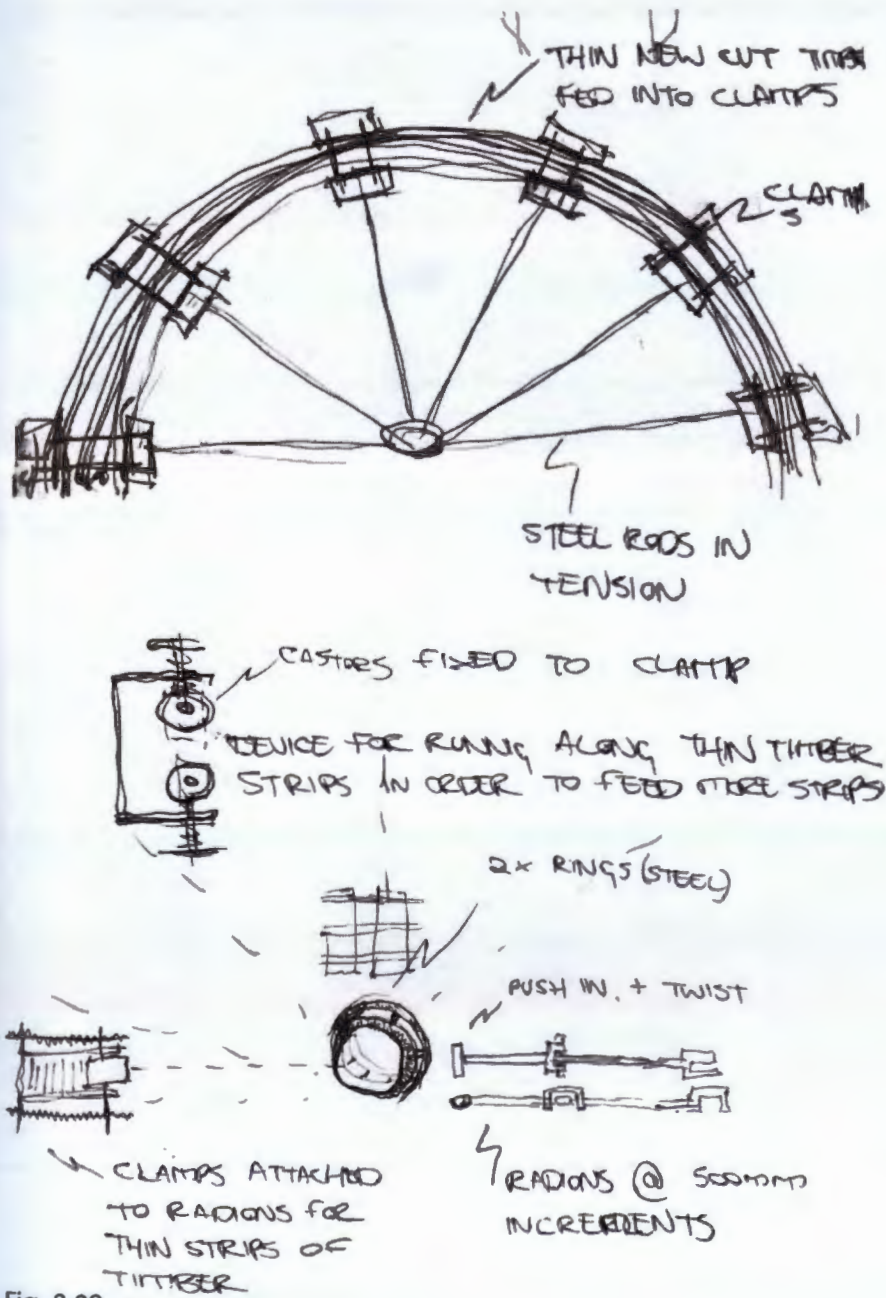 THIN NEW CUT TIMBER
FED INTO CLAMPS
CLAMPS
STEEL RODS IN
TENSION
CASTORS FIXED TO CLAMP
DEVICE FOR RUNNG ALONG THIN TIMBER
STRIPS IN ORDER TO FEED MORE STRIPS
2x RINGS (STEEL)
PUSH IN. + TWIST
CLAMPS ATTACHED
TO RADIONS FOR
THIN STRIPS OF
TIMBER
RADIONS @ 500mm
INCREMENTS